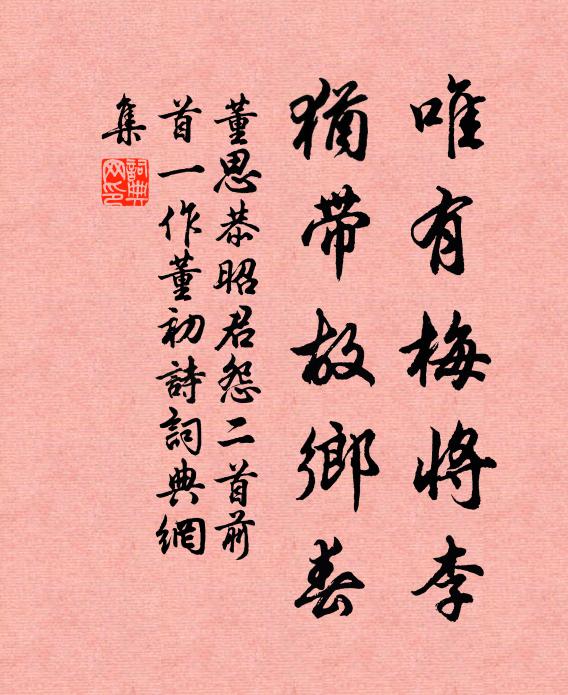 唯有梅將李
猶帶故鄉春
董思恭昭君怨二首前
首一作董初詩詞典網
集
詞典網印